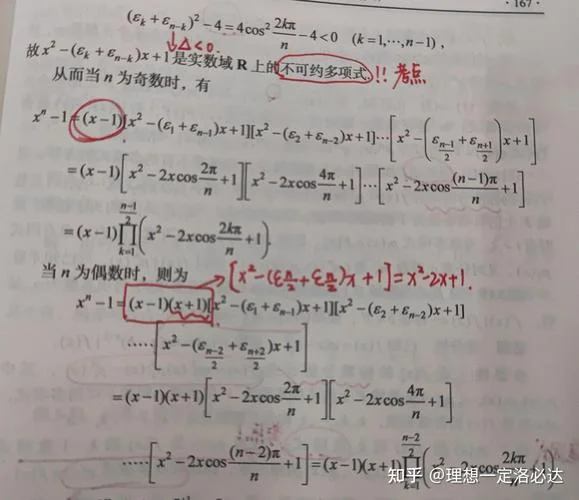 ·167·
(ε_k + ε_{n-k})² - 4 = 4cos² \frac{2kπ}{n} - 4 < 0 (k = 1, ⋯, n-1),
↓Δ<0.
故 x² - (ε_k + ε_{n-k})x + 1 是实数域 R 上的不可约多项式. !! 考点
从而当 n 为奇数时, 有
xⁿ - 1 = (x-1)[x² - (ε₁ + ε_{n-1})x + 1][x² - (ε₂ + ε_{n-2})x + 1]⋯[x² - (ε_{\frac{n-1}{2}} + ε_{\frac{n+1}{2}})x + 1]
= (x-1)[x² - 2x cos\frac{2π}{n} + 1][x² - 2x cos\frac{4π}{n} + 1]⋯[x² - 2x cos\frac{(n-1)π}{n} + 1]
= (x-1)∏_{k=1}^{\frac{n-1}{2}}(x² - 2x cos\frac{2kπ}{n} + 1).
当 n 为偶数时, 则为
[x² - (ε_{\frac{n}{2}} + ε_{\frac{n}{2}})x + 1] = x² - 2x + 1.
xⁿ - 1 = (x-1)(x+1)[x² - (ε₁ + ε_{n-1})x + 1][x² - (ε₂ + ε_{n-2})x + 1]
⋯⋯[x² - (ε_{\frac{n-2}{2}} + ε_{\frac{n+2}{2}})x + 1]
= (x-1)(x+1)[x² - 2x cos\frac{2π}{n} + 1][x² - 2x cos\frac{4π}{n} + 1]
⋯⋯[x² - 2x cos\frac{(n-2)π}{n} + 1] = (x-1)(x+1)∏_{k=1}^{\frac{n-2}{2}}(x² - 2x cos\frac{2kπ}{n}
知乎 @理想一定洛必达